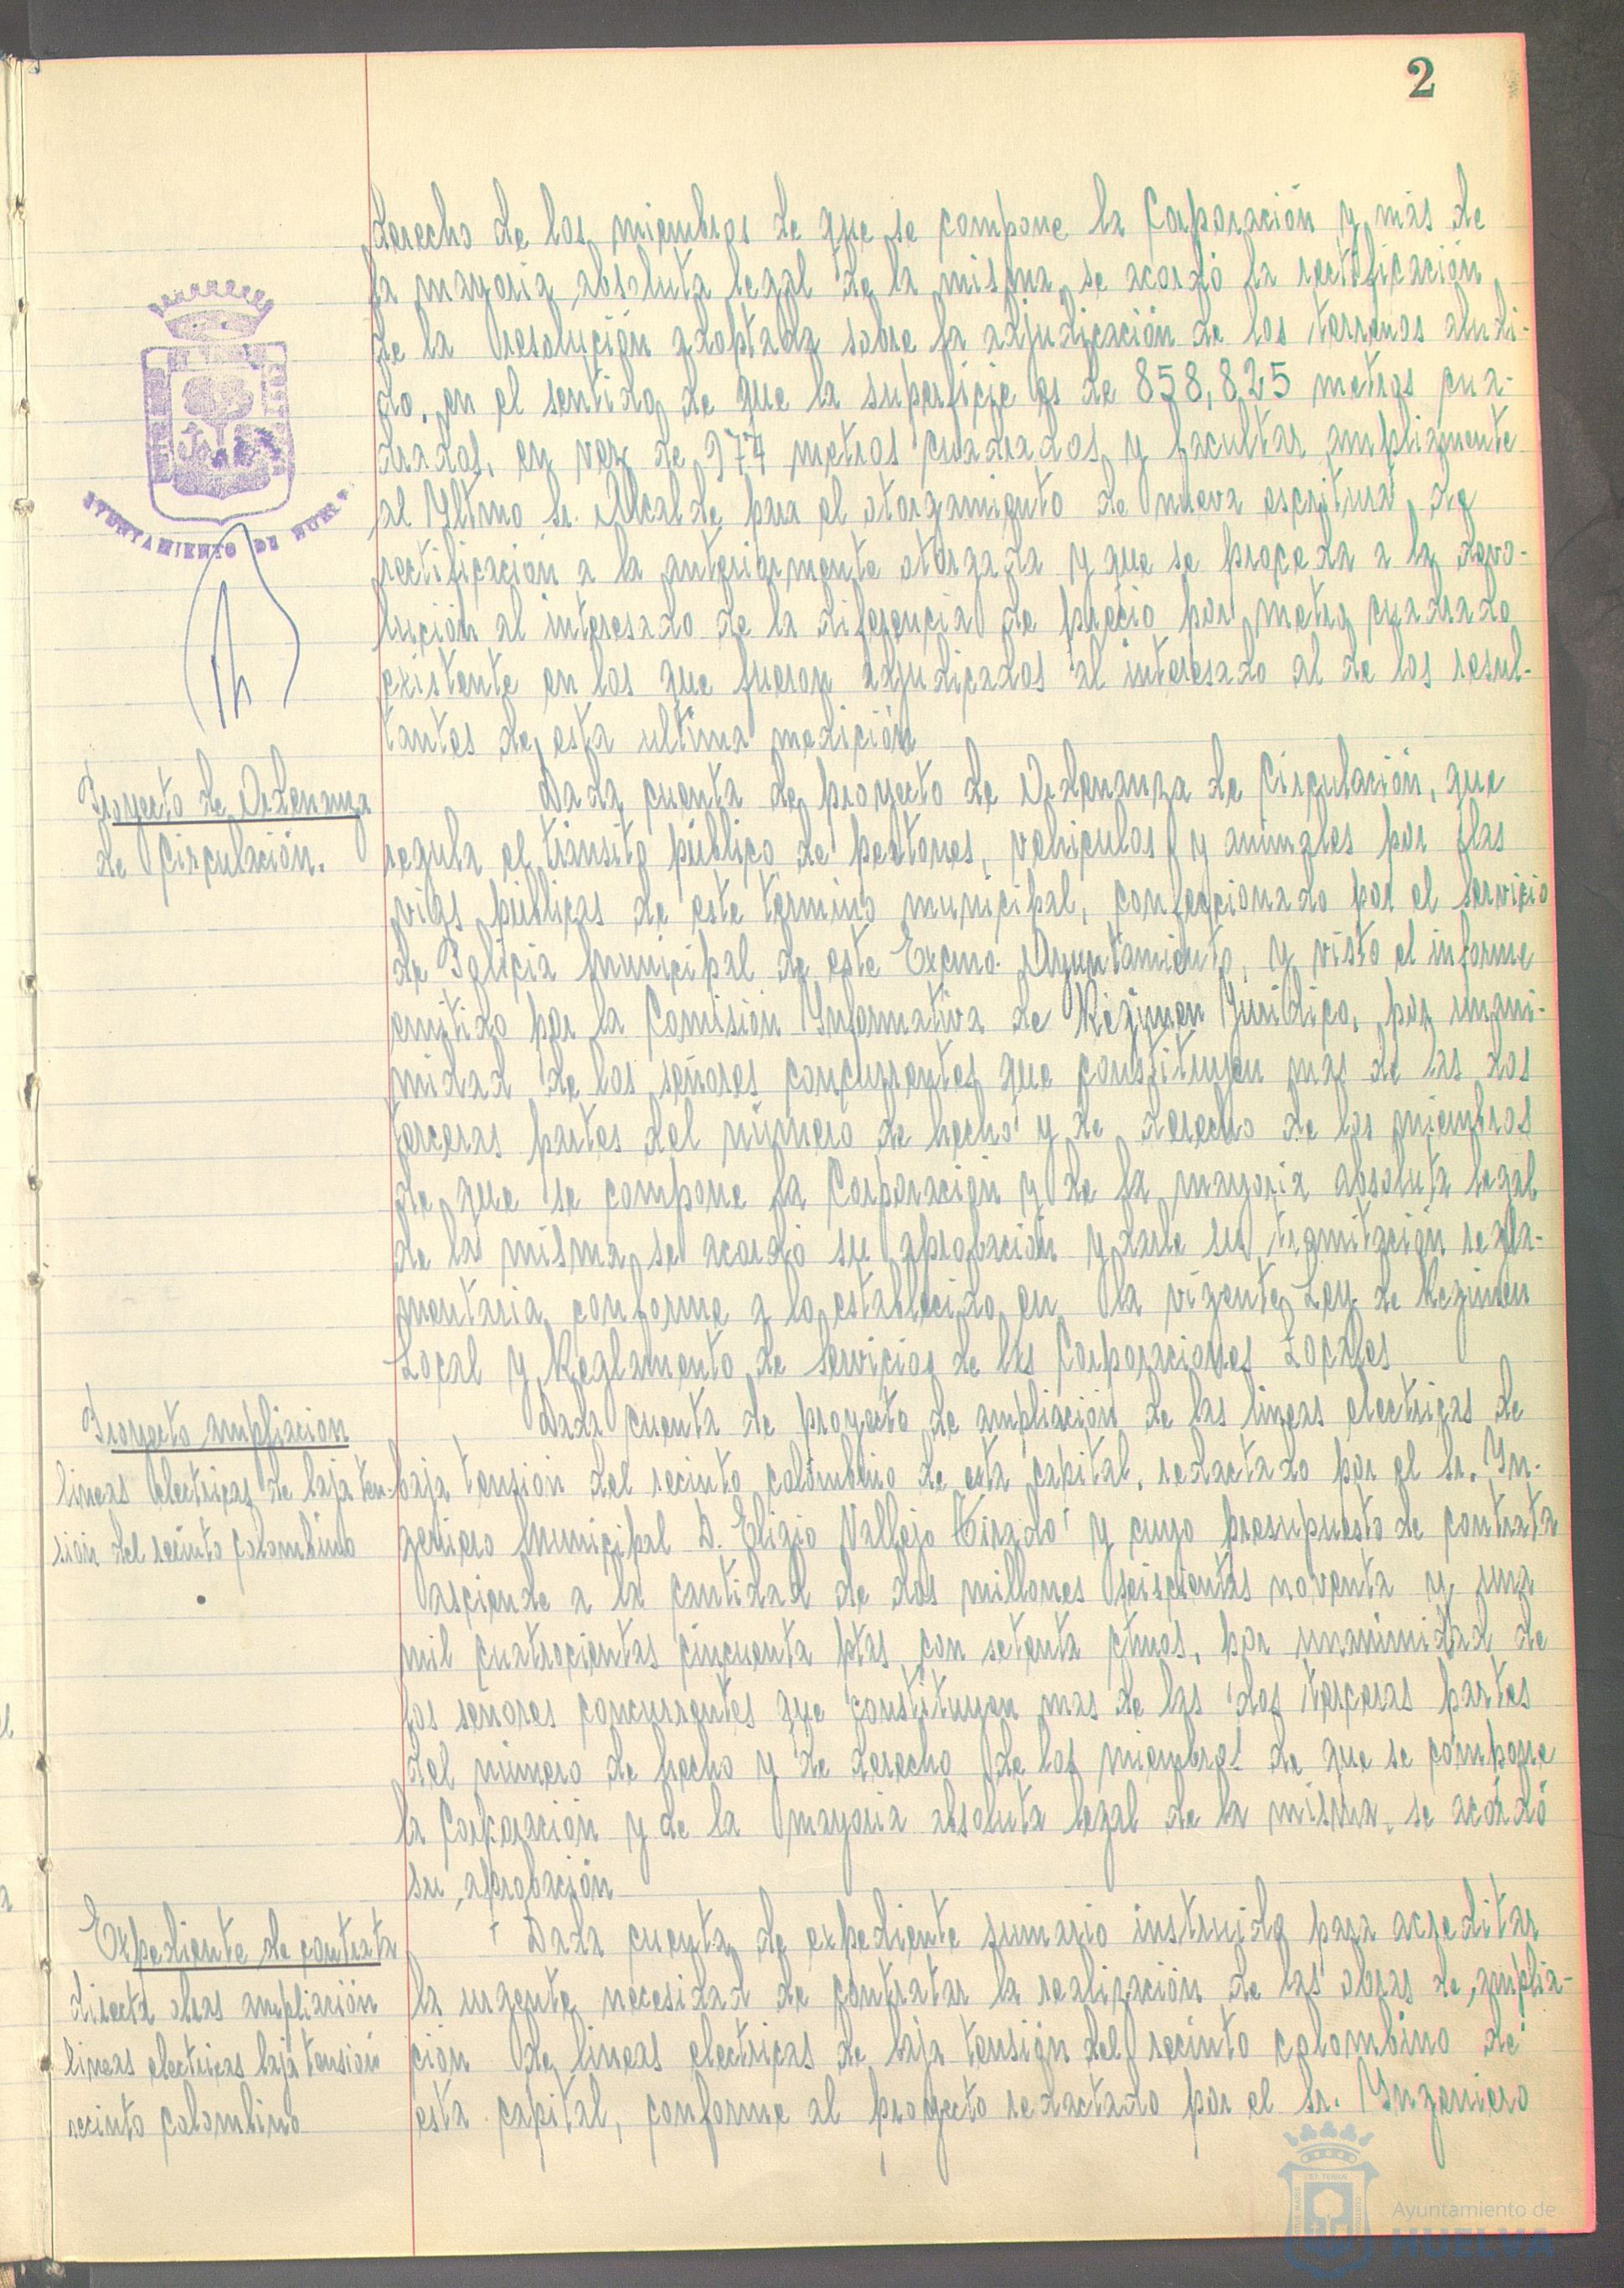 2
derecho de los miembros de que se compone la Corporación y más de
la mayoria absoluta legal de la misma, se acordó la rectificación
de la resolución adoptada sobre la adjudicación de los terrenos aludi-
do, en el sentido de que la superficie es de 858,825 metros cua-
drados, en vez de 974 metros cuadrados y facultar ampliamente
al Yltmo Sr. Alcalde para el otorgamiento de nueva escritura de
rectificación a la anteriormente otorgada y que se proceda a la devo-
lución al interesado de la diferencia de precio por metro cuadrado
existente en los que fueron adjudicados al interesado al de los resul-
tantes de esta ultima medición
AYUNTAMIENTO DE HUELVA
Proyecto de Ordenanza
de Circulación.
Dada cuenta de proyecto de Ordenanza de Circulación, que
regula el tránsito público de peatones, vehiculos y animales por las
vias públicas de este termino municipal, confeccionado por el Servicio
de Policia Municipal de este Excmo. Ayuntamiento, y visto el informe
emitido por la Comisión Ynformativa de Régimen Yuridico, por unani-
midad de los señores concurrentes que constituyen mas de las dos
terceras partes del número de hecho y de derecho de los miembros
de que se compone la Corporación y de la mayoria absoluta legal
de la misma, se acordó su aprobación y darle su tramitación regla-
mentaria conforme a lo establecido en la vigente Ley de Regimen
Local y Reglamento de Servicios de las Corporaciones Locales
Proyecto ampliacion
lineas electricas de baja ten-
sión del recinto colombino
Dada cuenta de proyecto de ampliación de las lineas electricas de
baja tensión del recinto colombino de esta capital, redactado por el Sr. Yn-
geniero Municipal D. Eligio Vallejo Tirado y cuyo presupuesto de contrata
asciende a la cantidad de dos millones seiscientas noventa y una
mil cuatrocientas cincuenta ptas con setenta ctmos, por unanimidad de
los señores concurrentes que constituyen mas de las dos terceras partes
del número de hecho y de derecho de los miembros de que se compone
la Corporación y de la mayoria absoluta legal de la misma, se acordó
su aprobación
Expediente de contrata
directa obras ampliación
lineas electricas baja tensión
recinto colombino
Dada cuenta de expediente sumario instruido para acreditar
la urgente necesidad de contratar la realización de las obras de amplia-
ción de lineas electricas de baja tensión del recinto colombino de
esta capital, conforme al proyecto redactado por el Sr. Yngeniero
Ayuntamiento de
HUELVA